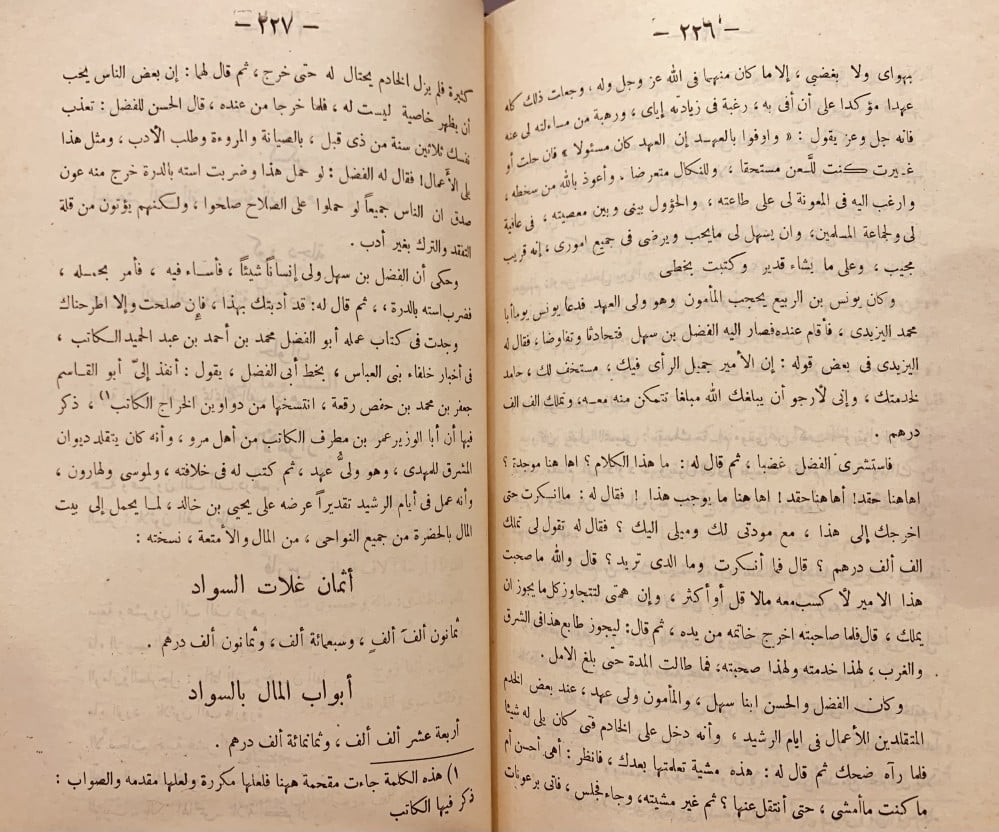 — ٢٢٦ —
بهواى ولا بغضبي ، إلا ما كان منهما فى الله عز وجل وله ، وجعلت ذلك كله
عهدا مؤكدا على أن أفى به ، رغبة فى زيادته إياى ، ورهبة من مساءلته لى عنه
فانه جل وعز يقول : « واوفوا بالعهد إن العهد كان مسئولا » فان حلت أو
غيرت كنت للَّعن مستحقا ، وللنكال متعرضا . وأعوذ بالله من سخطه ،
وارغب اليه فى المعونة لى على طاعته ، والحؤول بينى وبين معصيته ، فى عافية
لى ولجماعة المسلمين، وان يسهل لى مايحب ويرضى فى جميع امورى ، إنه قريب
مجيب ، وعلى ما يشاء قدير وكتبت بخطى
وكان يونس بن الربيع يحجب المأمون وهو ولى العهد فدعا يونس يوما أبا
محمد اليزيدى ، فأقام عنده فصار اليه الفضل بن سهل فتحادثا وتفاوضا ، فقال له
اليزيدى فى بعض قوله : إن الأمير جميل الرأى فيك ، مستخف لك ، حامد
لخدمتك ، وإنى لأرجو أن يبلغك الله مبلغا تتمكن منه معه، وتملك الف الف
درهم .
فاستشرى الفضل غضبا ، ثم قال له : ما هذا الكلام ؟ اها هنا موجدة ؟
اهاهنا حقد ! أهاهنا حقد ! اها هنا ما يوجب هذا ! فقال له : ما انكرت حتى
اخرجك إلى هذا ، مع مودتى لك وميلى اليك ؟ فقال له تقول لى تملك
الف ألف درهم ؟ قال فما أنكرت وما الذى تريد ؟ قال والله ما صحبت
هذا الامير لأكسب معه مالا قل أو أكثر ، وإن همتى لتتجاوز كل ما يجوز ان
يملك ، قال فلما صاحبته اخرج خاتمه من يده ، ثم قال : ليجوز طابع هذا فى الشرق
والغرب ، لهذا خدمته ولهذا صحبته، فما طالت المدة حتى بلغ الامل .
وكان الفضل والحسن ابنا سهل ، والمأمون ولى عهد ، عند بعض الخدم
المتقلدين للأعمال فى ايام الرشيد ، وأنه دخل على الخادم فتى كان يلى له شيئا
فلما رآه ضحك ثم قال له : هذه مشية تعلمتها بعدك ، فانظر : أهى أحسن أم
ما كنت ما أمشى ، حتى أنتقل عنها ؟ ثم غير مشيته، وجاء فجلس ، فاتى برعونات
— ٢٢٧ —
كثيرة فلم يزل الخادم يحتال له حتى خرج ، ثم قال لهما : إن بعض الناس يحب
أن يظهر خاصية ليست له ، فلما خرجا من عنده ، قال الحسن للفضل : تعذب
نفسك ثلاثين سنة من ذى قبل ، بالصيانة والمروءة وطلب الأدب ، ومثل هذا
يلى الأعمال ! فقال له الفضل : لو حمل هذا وضربت استه بالدرة خرج منه عون
صدق ان الناس جميعاً لو حملوا على الصلاح صلحوا ، ولكنهم يؤتون من قلة
التفقد والترك بغير أدب .
وحكى أن الفضل بن سهل ولى إنساناً شيئاً ، فأساء فيه ، فأمر بحمله ،
فضرب استه بالدرة ، ، ثم قال له : قد أدبتك بهذا ، فإن صلحت وإلا اطرحناك
وجدت فى كتاب عمله أبو الفضل محمد بن أحمد بن عبد الحميد الكاتب ،
فى أخبار خلفاء بنى العباس ، بخط أبى الفضل ، يقول : أنفذ إلىّ أبو القاسم
جعفر بن محمد بن حفص رقعة ، انتسخها من دواوين الخراج الكاتب ١) ، ذكر
فيها أن أبا الوزير عمر بن مطرف الكاتب من أهل مرو ، وأنه كان يتقلد ديوان
المشرق للمهدى ، وهو ولىُّ عهد ، ثم كتب له فى خلافته ، ولموسى ولهارون ،
وأنه عمل فى أيام الرشيد تقديراً عرضه على يحيى بن خالد ، لما يحمل إلى بيت
المال بالحضرة من جميع النواحى ، من المال والأمتعة ، نسخته :
أثمان غلات السواد
ثمانون ألف ألفٍ ، وسبعمائة ألف، وثمانون ألف درهم .
أبواب المال بالسواد
أربعة عشر ألف ألف ، وثمانمائة ألف درهم .
١) هذه الكلمة جاءت مقحمة ههنا فلعلها مكررة ولعلها مقدمه والصواب :
ذكر فيها الكاتب